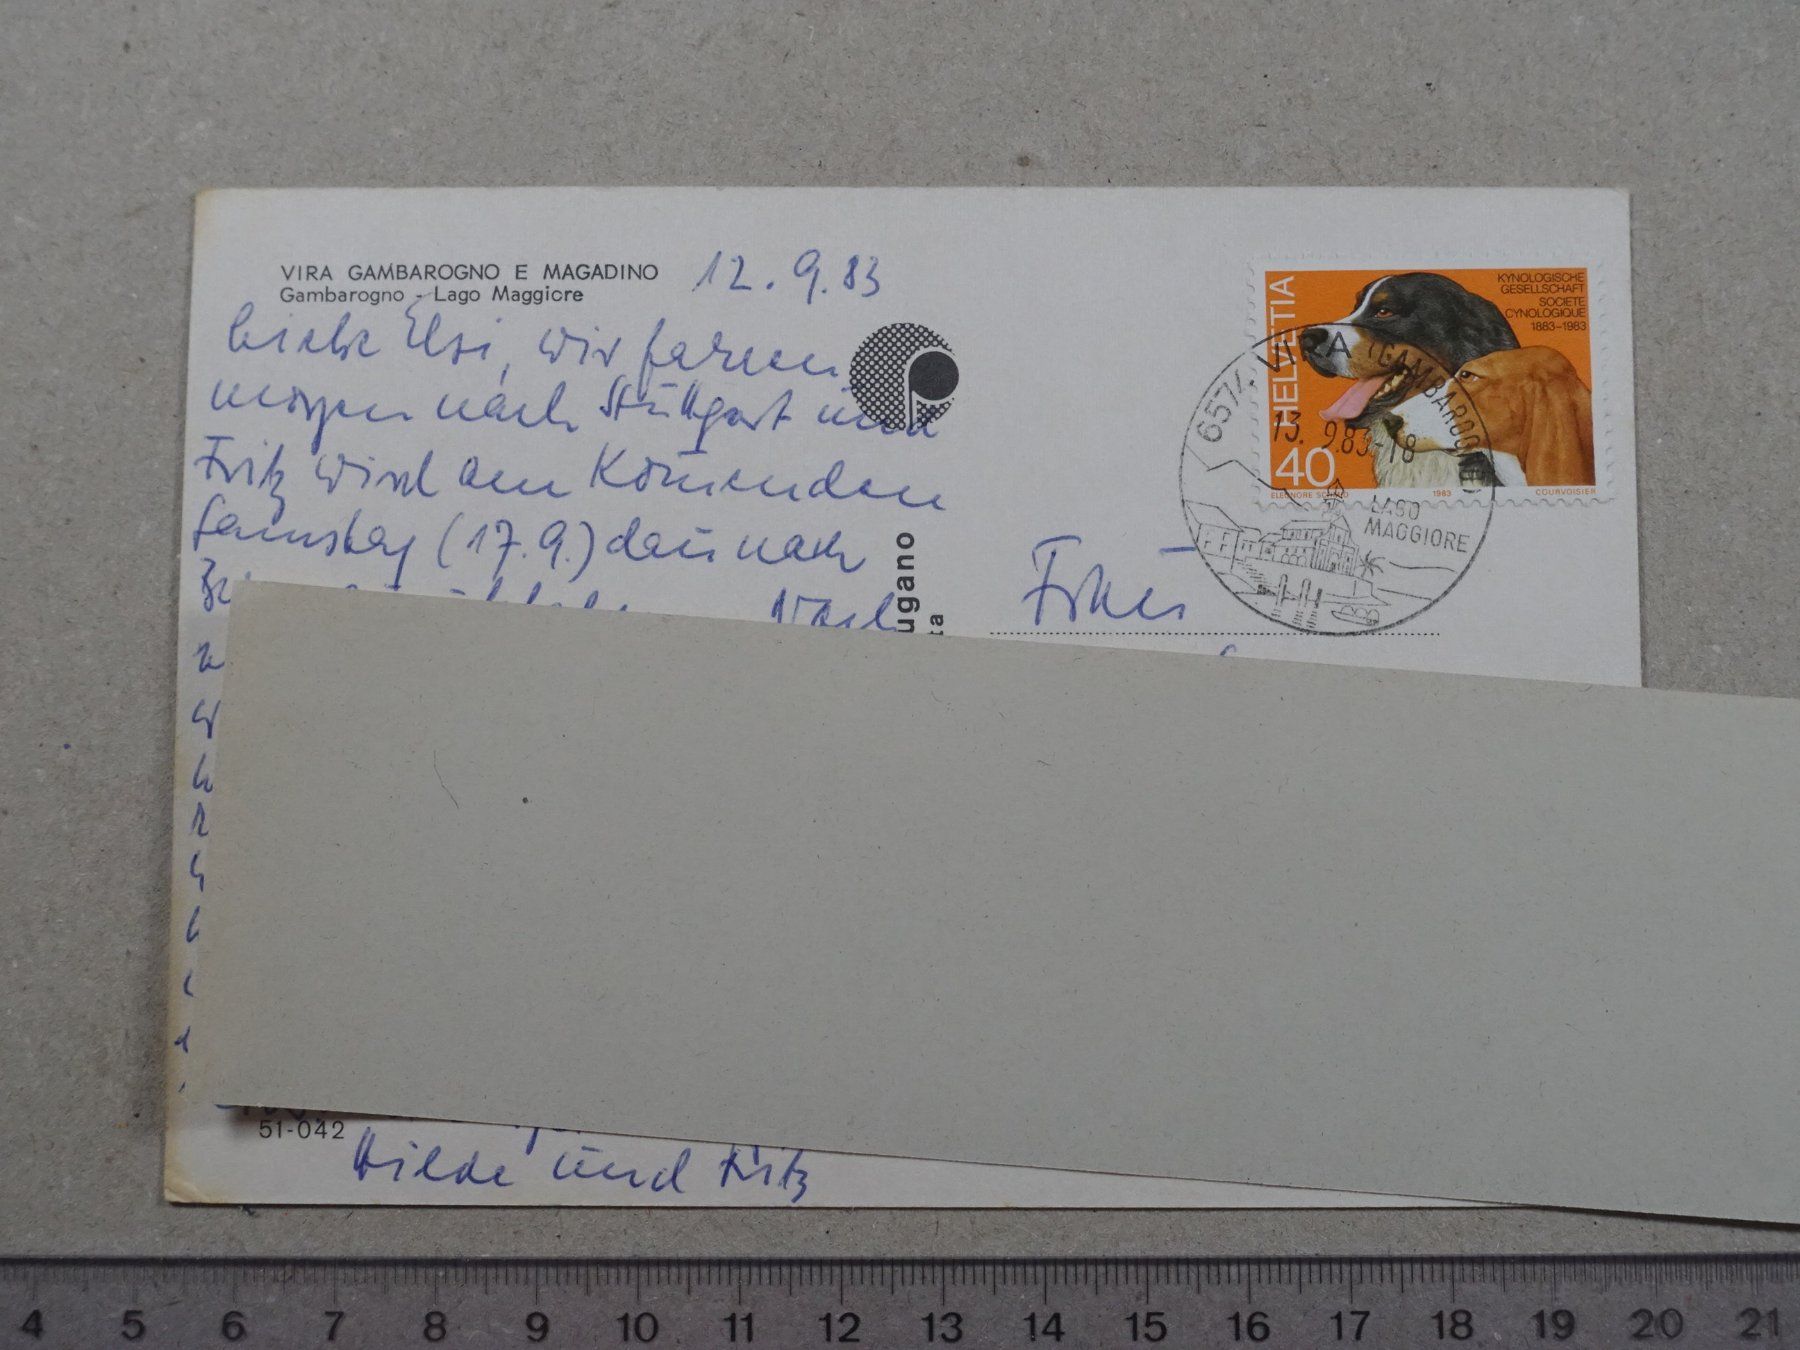 VIRA GAMBAROGNO E MAGADINO
Gambarogno - Lago Maggiore
12.9.83
Liebe Elsi, wir fahren
morgen nach Stuttgart und
Fritz wird am kommenden
Samstag (17.9.) dann nach
Nach
Hilde und Fritz
51-042
ugano
ta
HELVETIA
KYNOLOGISCHE
GESELLSCHAFT
SOCIETE
CYNOLOGIQUE
1883-1983
40
ELEONORE SCHMID
1983
COURVOISIER
6574 VIRA (GAMBAROGNO)
13. 9.83-18
LAGO
MAGGIORE
4 5 6 7 8 9 10 11 12 13 14 15 16 17 18 19 20 21